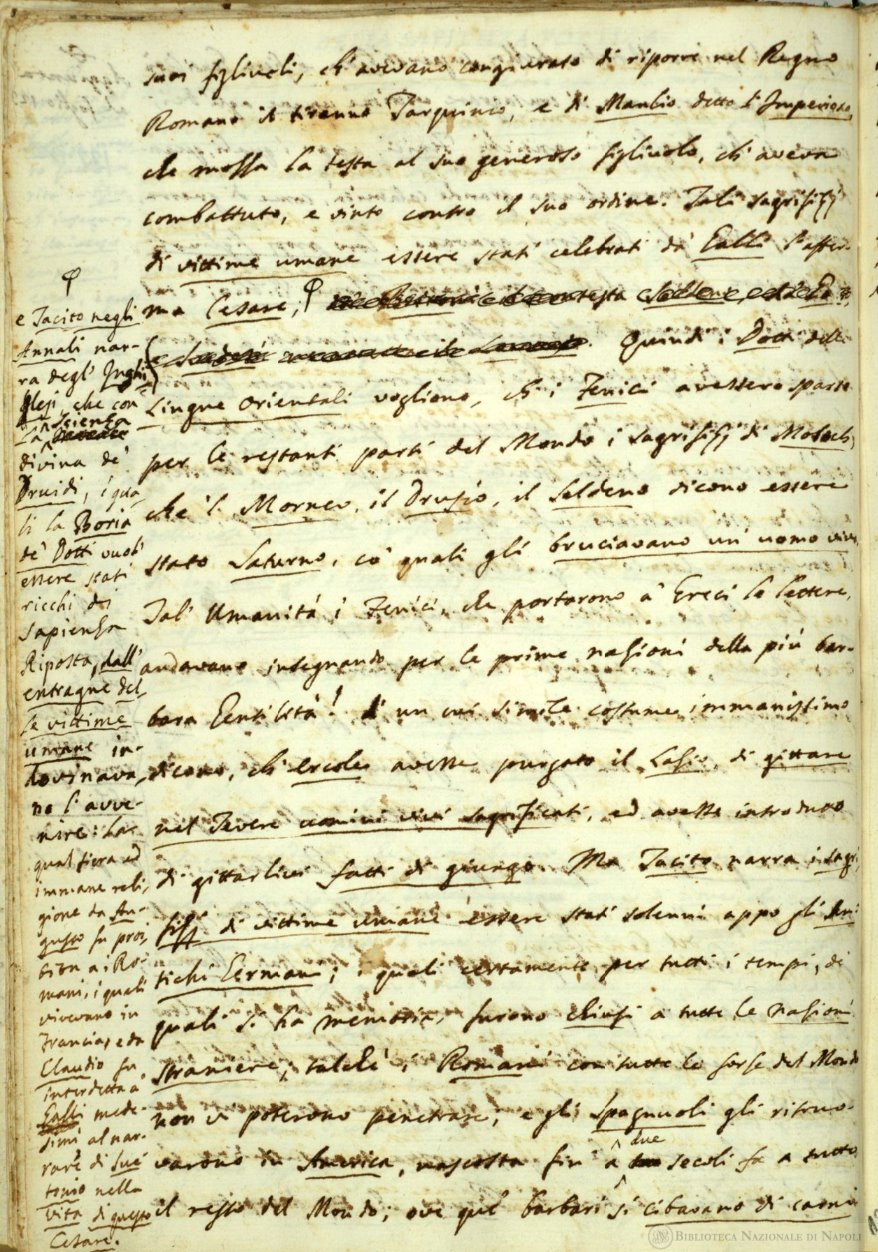 suoi figliuoli, ch'avevano congiurato di riporre nel Regno
Romano il tiranno Tarquinio, e di Manlio detto l'Imperioso,
che mozza la testa al suo generoso figliuolo, ch'aveva
combattuto, e vinto contro il suo ordine. Tali sagrifizj
di vittime umane essere stati celebrati da' Galli l'affer-
ma Cesare;
Quindi i Dotti delle
Lingue Orientali vogliono, ch'i Fenici avessero sparso
per le restanti parti del Mondo i sagrifizj di Moloch,
che 'l Morneo, il Drusio, il Seldeno dicono essere
stato Saturno, co' quali gli bruciavano un' uomo vivo.
Tal' Umanità i Fenici, che portarono a' Greci le lettere,
andavano insegnando per le prime nazioni della più bar-
bara Gentilità! d' un cui simile costume immanissimo
dicono, ch' Ercole avesse purgato il Lazio, di gittare
nel Tevere uomini vivi sagrificati, ed avesse introdutto
di gittarlivi fatti di giungo. Ma Tacito narra i sagri-
fizj di vittime umane essere stati solenni appo gli An-
tichi Germani; i quali certamente per tutti i tempi, di
quali si ha memoria, furono chiusi a tutte le nazioni
straniere; talchè i Romani con tutte le forze del Mondo
non vi poterono penetrare; e gli Spagnuoli gli ritruo-
varono in America, nascosta fin' a due secoli fa a tutto
il resto del Mondo; ove que' barbari si cibavano di carni
e Tacito negli
Annali nar-
ra degl' Inghi-
lesi, che con
la scienza
divina de'
Druidi, i qua-
li la Boria
de' Dotti vuol'
essere stati
ricchi di
Sapienza
Riposta, dall'
entragne del-
le vittime
umane in-
dovinava-
no l'avve-
nire: la
qual fiera ed
immane reli-
gione da Au-
gusto fu proi-
bita a i Ro-
mani, i quali
vivevano in
Francia, e da
Claudio fu
interdetta a'
Galli mede-
simi al nar-
rare di Sue-
tonio nella
vita di questo
Cesare.
BIBLIOTECA NAZIONALE DI NAPOLI